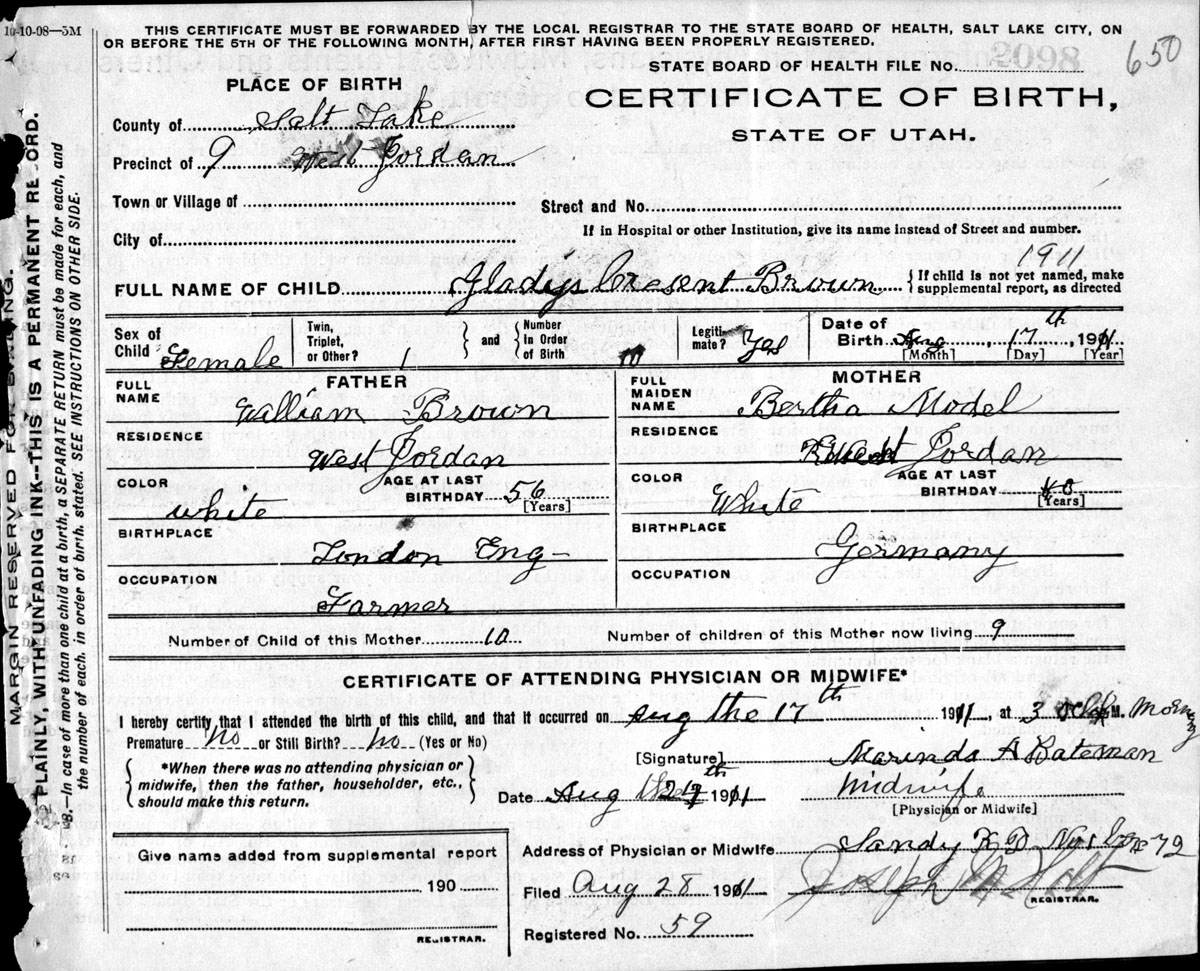 10-10-08—5M
THIS CERTIFICATE MUST BE FORWARDED BY THE LOCAL REGISTRAR TO THE STATE BOARD OF HEALTH, SALT LAKE CITY, ON
OR BEFORE THE 5TH OF THE FOLLOWING MONTH, AFTER FIRST HAVING BEEN PROPERLY REGISTERED.
650
STATE BOARD OF HEALTH FILE NO.
PLACE OF BIRTH
CERTIFICATE OF BIRTH,
STATE OF UTAH.
County of Salt Lake
Precinct of 9 West Jordan
Town or Village of
Street and No.
City of
If in Hospital or other Institution, give its name instead of Street and number.
1911
FULL NAME OF CHILD Gladys Cresent Brown { If child is not yet named, make
supplemental report, as directed
Sex of Child Female
Twin, Triplet, or Other? 1 } and { Number In Order of Birth 10
Legiti-mate? Yes
Date of Birth Aug 17th, 1911
[Month] [Day] [Year]
FATHER
FULL NAME William Brown
RESIDENCE West Jordan
COLOR white AGE AT LAST BIRTHDAY 56 [Years]
BIRTHPLACE London Eng—
OCCUPATION Farmer
MOTHER
FULL MAIDEN NAME Bertha Model
RESIDENCE West Jordan
COLOR White AGE AT LAST BIRTHDAY [Years]
BIRTHPLACE Germany
OCCUPATION
Number of Child of this Mother 10 Number of children of this Mother now living 9
CERTIFICATE OF ATTENDING PHYSICIAN OR MIDWIFE*
I hereby certify that I attended the birth of this child, and that it occurred on Aug the 17th 1911, at 3 M.
Premature No or Still Birth? No (Yes or No)
{ *When there was no attending physician or
midwife, then the father, householder, etc.,
should make this return. }
[Signature] Marinda A Bateman
Date Aug the 1911 Midwife
[Physician or Midwife]
Address of Physician or Midwife Sandy
Give name added from supplemental report
190
REGISTRAR.
Filed Aug 28 1911 Joseph
REGISTRAR.
Registered No. 59
MARGIN RESERVED FOR BINDING.
PLAINLY, WITH UNFADING INK--THIS IS A PERMANENT RECORD.
B.—In case of more than one child at a birth, a SEPARATE RETURN must be made for each, and
the number of each, in order of birth, stated. SEE INSTRUCTIONS ON OTHER SIDE.